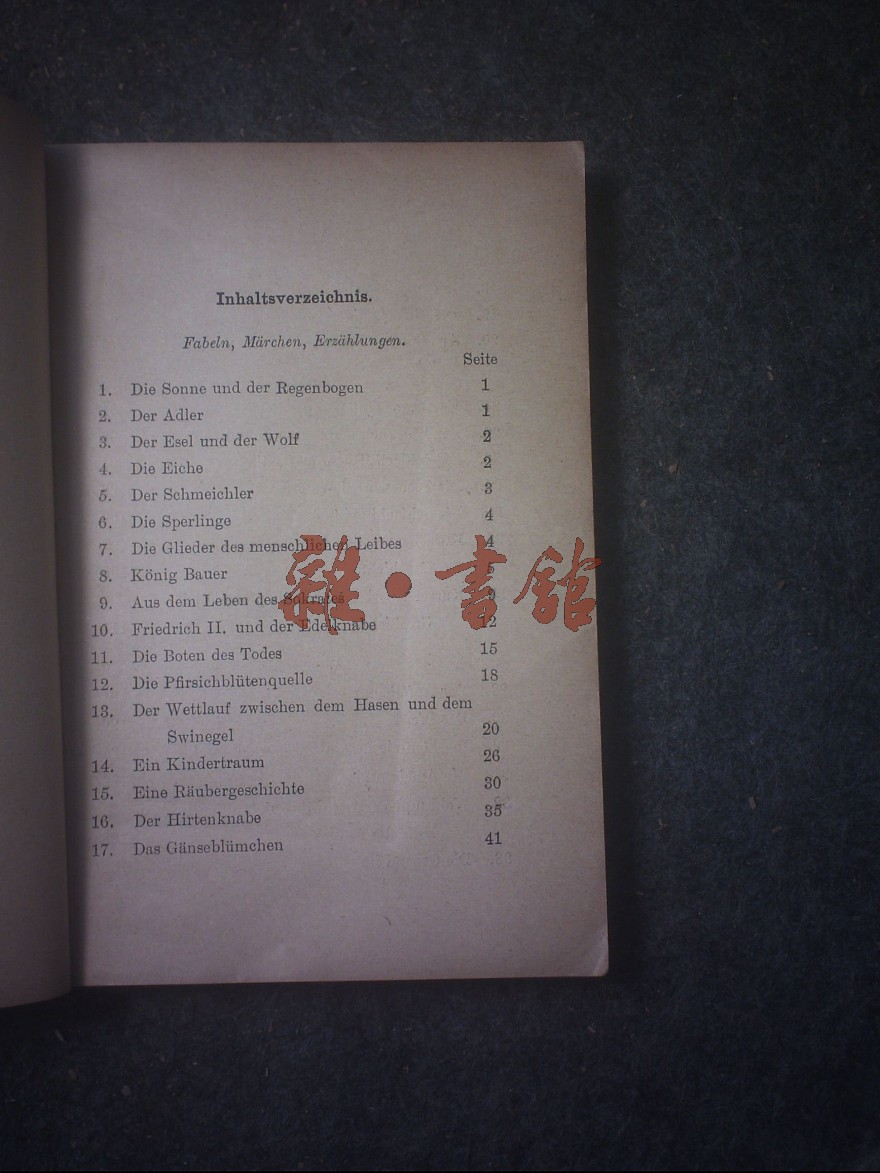 Inhaltsverzeichnis.
Fabeln, Märchen, Erzählungen.
Seite
1. Die Sonne und der Regenbogen 1
2. Der Adler 1
3. Der Esel und der Wolf 2
4. Die Eiche 2
5. Der Schmeichler 3
6. Die Sperlinge 4
7. Die Glieder des menschlichen Leibes 4
8. König Bauer
9. Aus dem Leben des Sokrates 9
10. Friedrich II. und der Edelknabe 12
11. Die Boten des Todes 15
12. Die Pfirsichblütenquelle 18
13. Der Wettlauf zwischen dem Hasen und dem
Swinegel 20
14. Ein Kindertraum 26
15. Eine Räubergeschichte 30
16. Der Hirtenknabe 35
17. Das Gänseblümchen 41
雜·書館